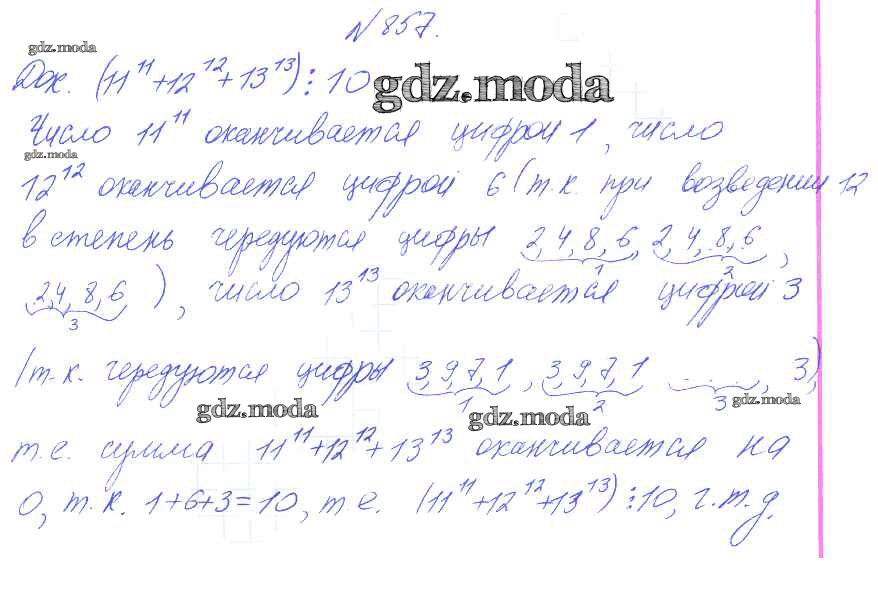 N 857.
gdz.moda
Док. (11¹¹+12¹²+13¹³)⋮10
gdz.moda
Число 11¹¹ оканчивается цифрой 1, число
gdz.moda
12¹² оканчивается цифрой 6 (т.к. при возведении 12
в степень чередуются цифры 2,4,8,6, 2,4,8,6,
1 2
2,4,8,6), число 13¹³ оканчивается цифрой 3
3
(т.к. чередуются цифры 3,9,7,1, 3,9,7,1 ...., 3),
1 2 3
gdz.moda gdz.moda gdz.moda
т.е. сумма 11¹¹+12¹²+13¹³ оканчивается на
0, т.к. 1+6+3=10, т.е. (11¹¹+12¹²+13¹³)⋮10, ч.т.д.